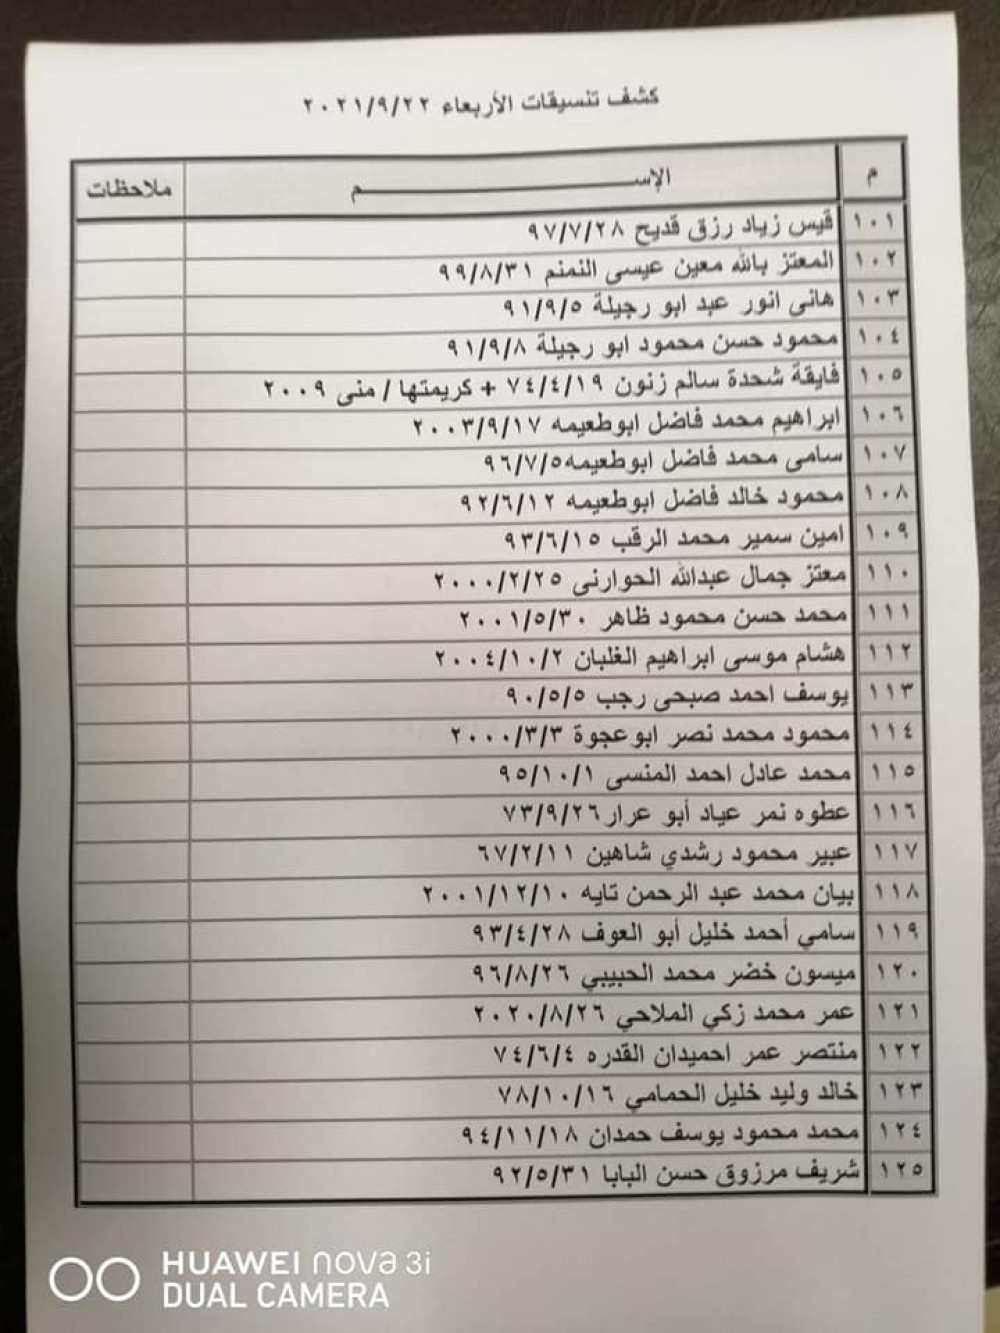 كشف تنسيقات الأربعاء ٢٠٢١/٩/٢٢
م الإســـــــــم ملاحظات
١٠١ قيس زياد رزق قديح ٩٧/٧/٢٨
١٠٢ المعتز بالله معين عيسى النمنم ٩٩/٨/٣١
١٠٣ هانى انور عبد ابو رجيلة ٩١/٩/٥
١٠٤ محمود حسن محمود ابو رجيلة ٩١/٩/٨
١٠٥ فايقة شحدة سالم زنون ٧٤/٤/١٩ + كريمتها / منى ٢٠٠٩
١٠٦ ابراهيم محمد فاضل ابوطعيمه ٢٠٠٣/٩/١٧
١٠٧ سامى محمد فاضل ابوطعيمه٩٦/٧/٥
١٠٨ محمود خالد فاضل ابوطعيمه ٩٢/٦/١٢
١٠٩ امين سمير محمد الرقب ٩٣/٦/١٥
١١٠ معتز جمال عبدالله الحوارنى ٢٠٠٠/٢/٢٥
١١١ محمد حسن محمود ظاهر ٢٠٠١/٥/٣٠
١١٢ هشام موسى ابراهيم الغلبان ٢٠٠٤/١٠/٢
١١٣ يوسف احمد صبحى رجب ٩٠/٥/٥
١١٤ محمود محمد نصر ابوعجوة ٢٠٠٠/٣/٣
١١٥ محمد عادل احمد المنسى ٩٥/١٠/١
١١٦ عطوه نمر عياد أبو عرار٧٣/٩/٢٦
١١٧ عبير محمود رشدي شاهين ٦٧/٢/١١
١١٨ بيان محمد عبد الرحمن تايه ٢٠٠١/١٢/١٠
١١٩ سامي أحمد خليل أبو العوف ٩٣/٤/٢٨
١٢٠ ميسون خضر محمد الحبيبي ٩٦/٨/٢٦
١٢١ عمر محمد زكي الملاحي ٢٠٢٠/٨/٢٦
١٢٢ منتصر عمر احميدان القدره ٧٤/٦/٤
١٢٣ خالد وليد خليل الحمامي ٧٨/١٠/١٦
١٢٤ محمد محمود يوسف حمدان ٩٤/١١/١٨
١٢٥ شريف مرزوق حسن البابا ٩٢/٥/٣١
HUAWEI nova 3i
DUAL CAMERA